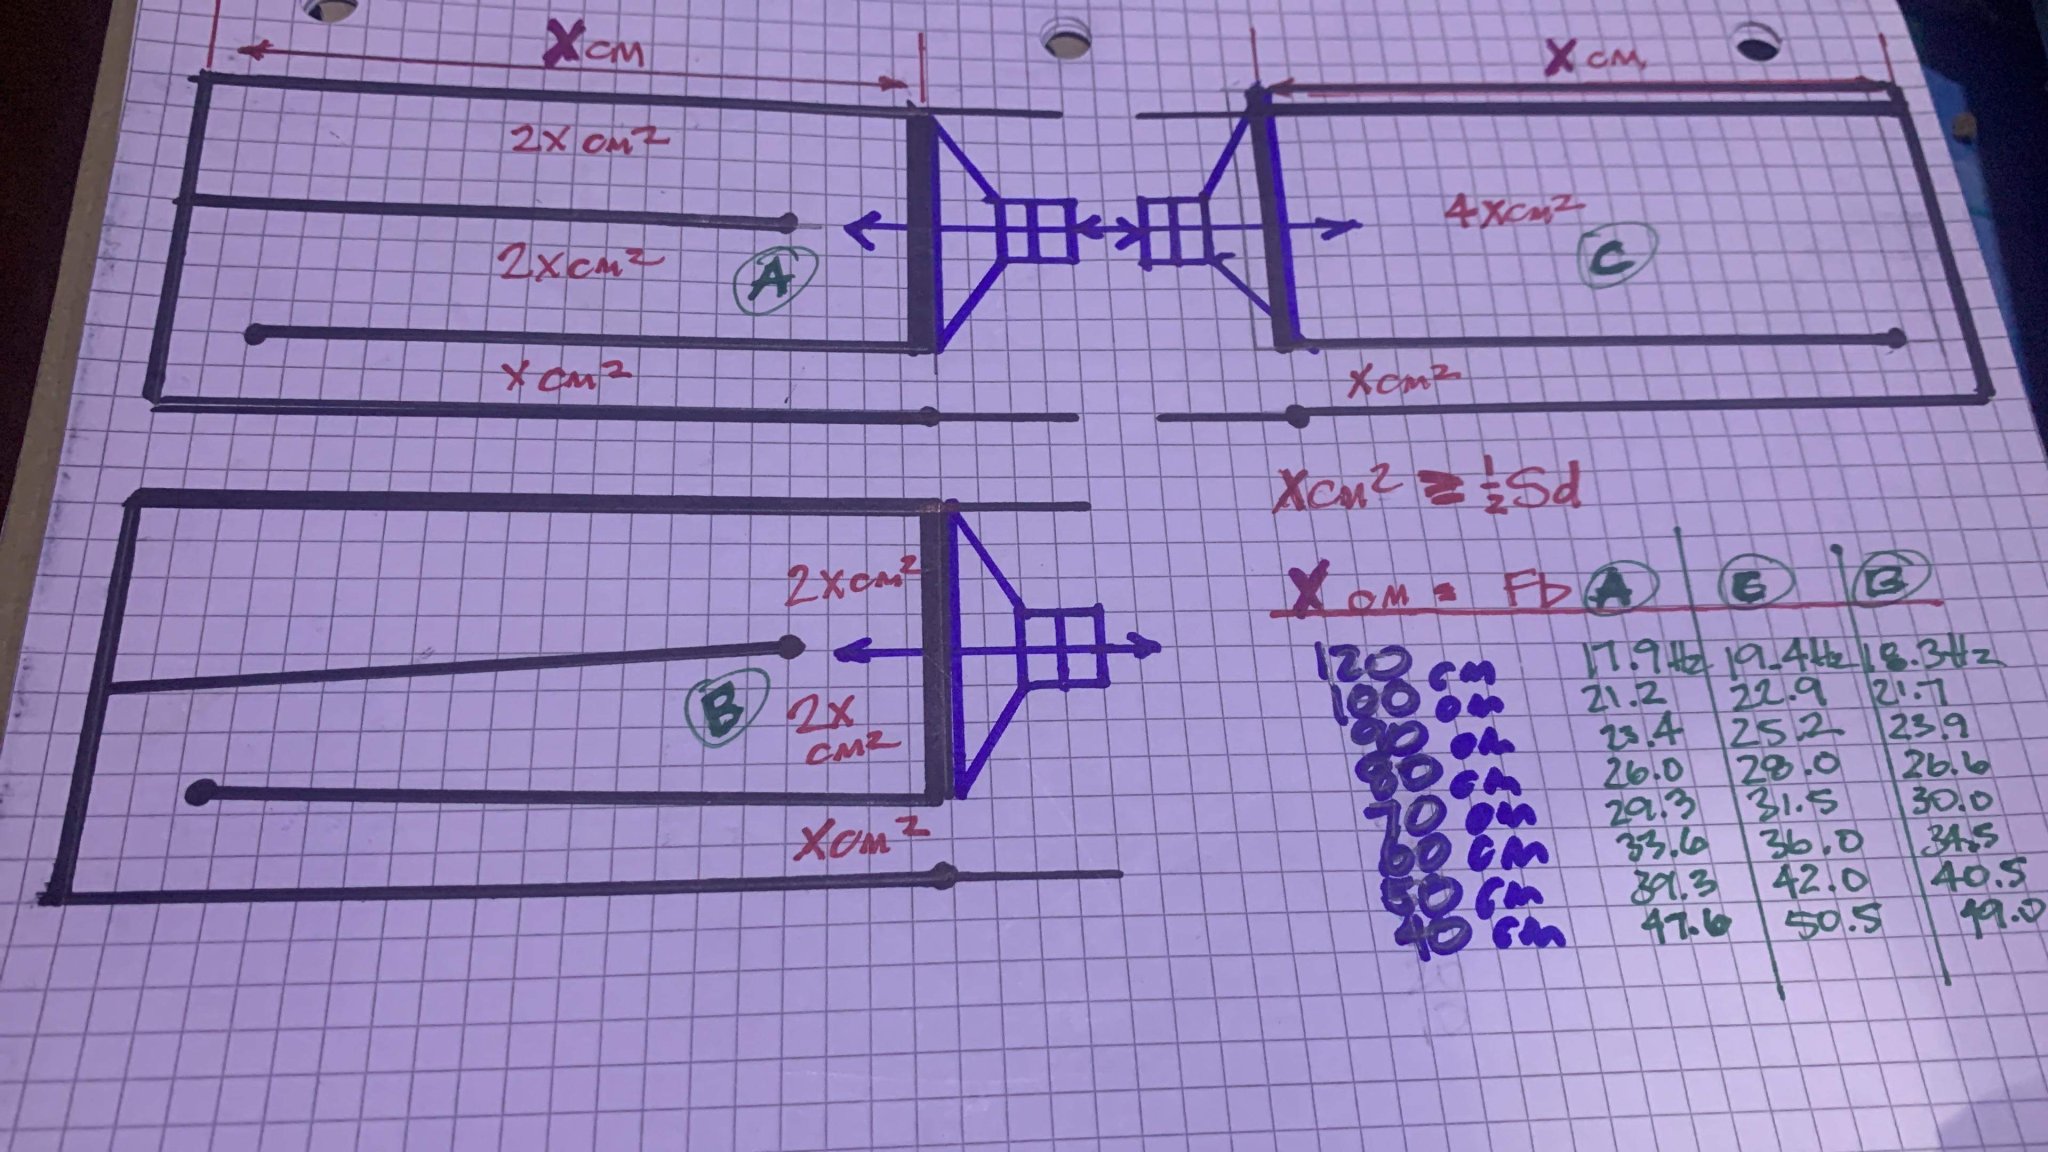 X cm
X cm
2x cm²
2x cm²
A
x cm²
4x cm²
C
x cm²
2x cm²
B
2x
cm²
x cm²
x cm² = ½ Sd
X cm = Fb A B
120 cm 17.9Hz 19.4Hz 18.3Hz
100 cm 21.2 22.9 21.7
90 cm 23.4 25.2 23.9
80 cm 26.0 28.0 26.6
70 cm 29.3 31.5 30.0
60 cm 33.6 36.0 34.5
50 cm 39.3 42.0 40.5
40 cm 47.6 50.5 49.0